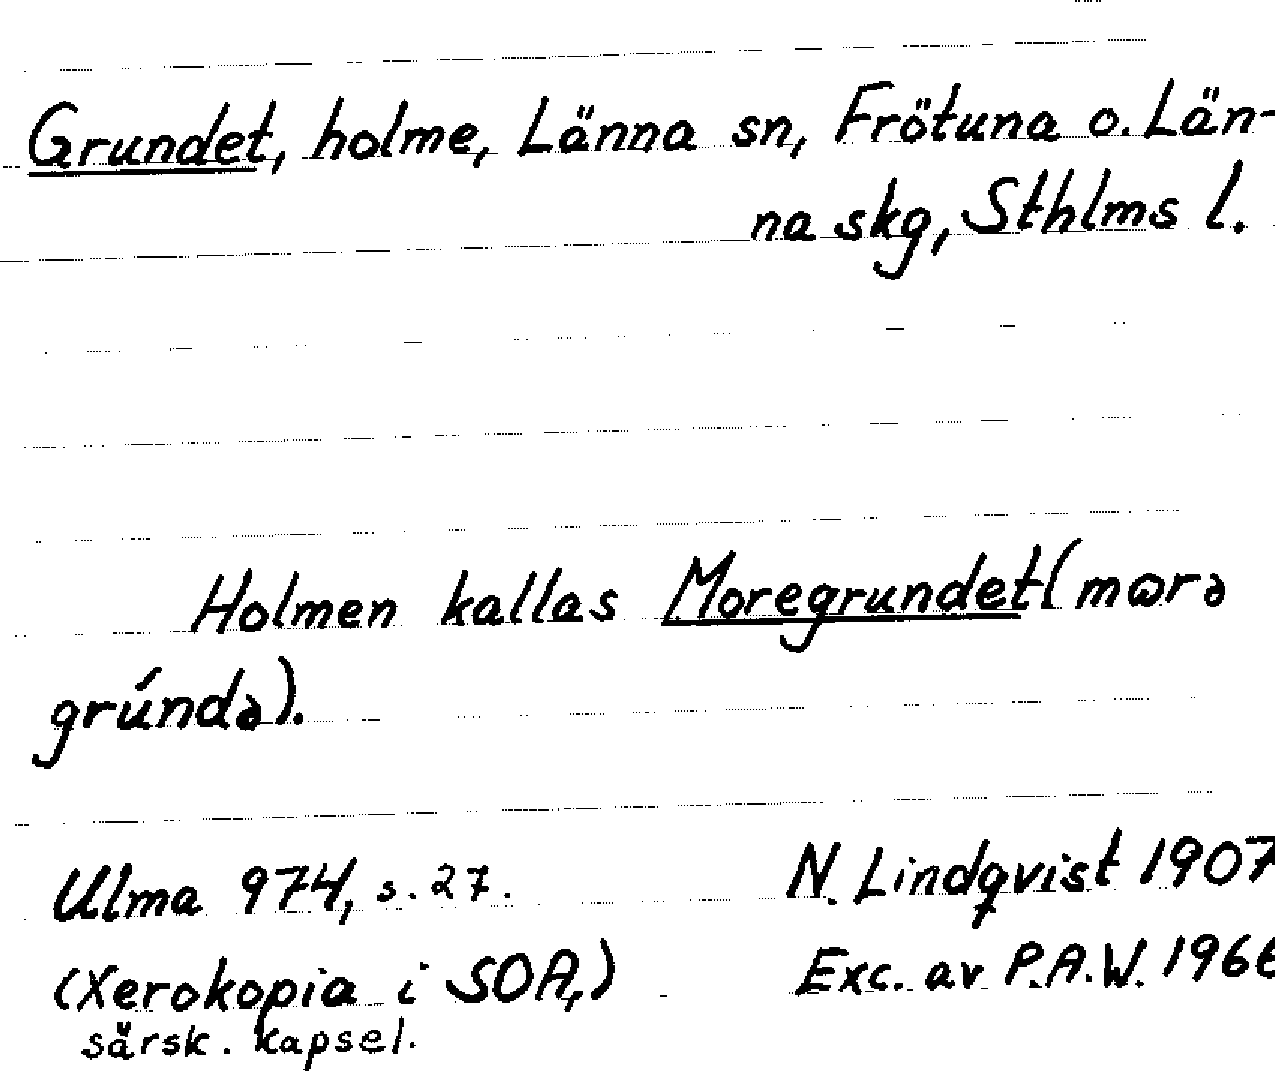 Grundet, holme, Länna sn, Frötuna o. Län-
na skg, Sthlms l.
Holmen kallas Moregrundet (mɷrə
grúndə).
Ulma 974, s. 27. N. Lindqvist 1907
(Xerokopia i SOA,) Exc. av P.A.W. 1966
särsk. kapsel.